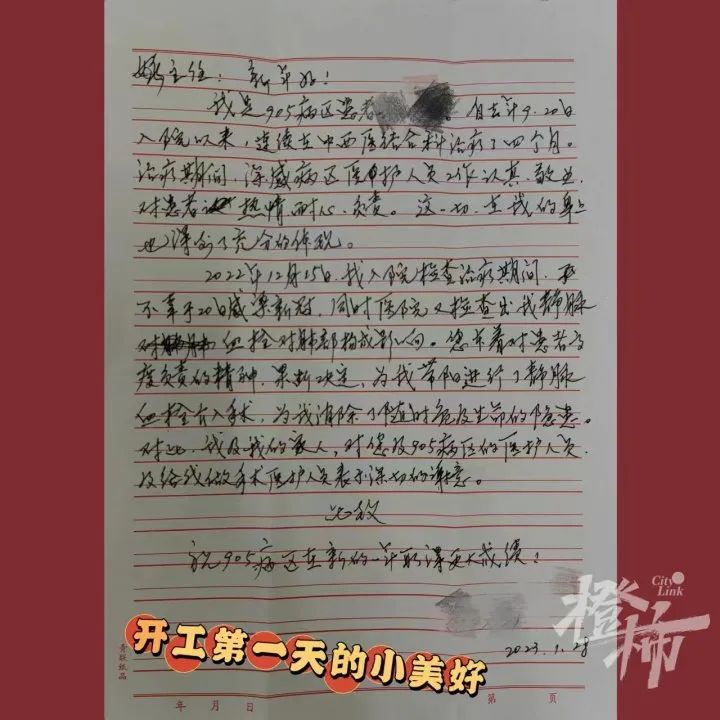 主任：新年好！
我是905病区患者 自去年9.20日
入院以来，连续在中西医结合科治疗了四个月。
治疗期间，深感病区医护人员工作认真、敬业，
对患者热情、耐心、负责。这一切，在我的身上
也得到了充分的体现。
2022年12月15日，我入院检查治疗期间，
不幸于20日感染新冠，同时医院又检查出我静脉
血栓对肺部构成影响。您本着对患者高
度负责的精神，果断决定，为我带阳进行了静脉
血栓介入手术，为我消除了随时危及生命的隐患。
对此，我及我的家人，对您及905病区的医护人员，
及给我做手术医护人员表示深切的谢意。
此致
祝905病区在新的一年取得更大成绩！
2023.1.28
开工第一天的小美好
橙柿
City Link
青联纸品
年 月 日 第 页